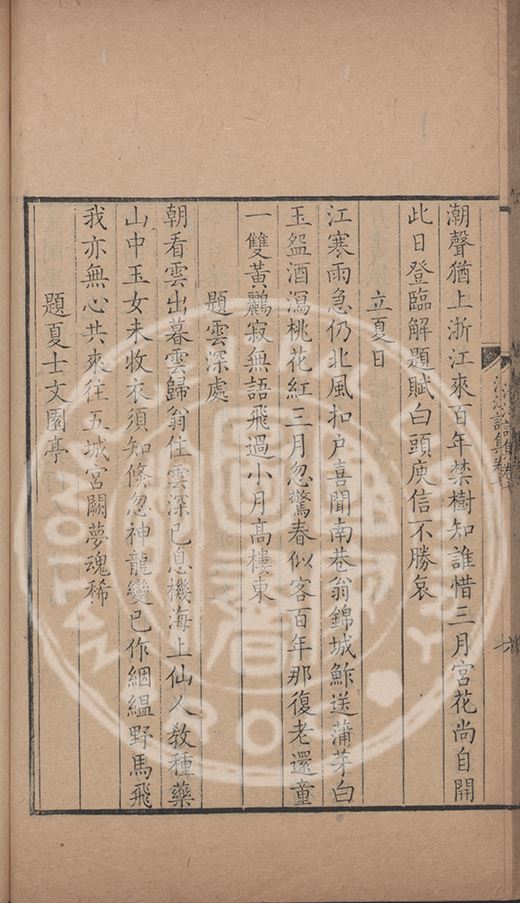 潮聲猶上浙江來百年禁樹知誰惜三月宮花尚自開
此日登臨解題賦白頭庾信不勝哀
立夏日
江寒雨急仍北風扣户喜聞南巷翁錦城鮓送蒲芽白
玉盌酒瀉桃花紅三月忽驚春似客百年那復老還童
一雙黃鸝寂無語飛過小月高樓東
題雲深處
朝看雲出暮雲歸翁住雲深已息機海上仙人教種藥
山中玉女未收衣須知倏忽神龍變已作絪縕野馬飛
我亦無心共來往五城宮闕夢魂稀
題夏士文園亭